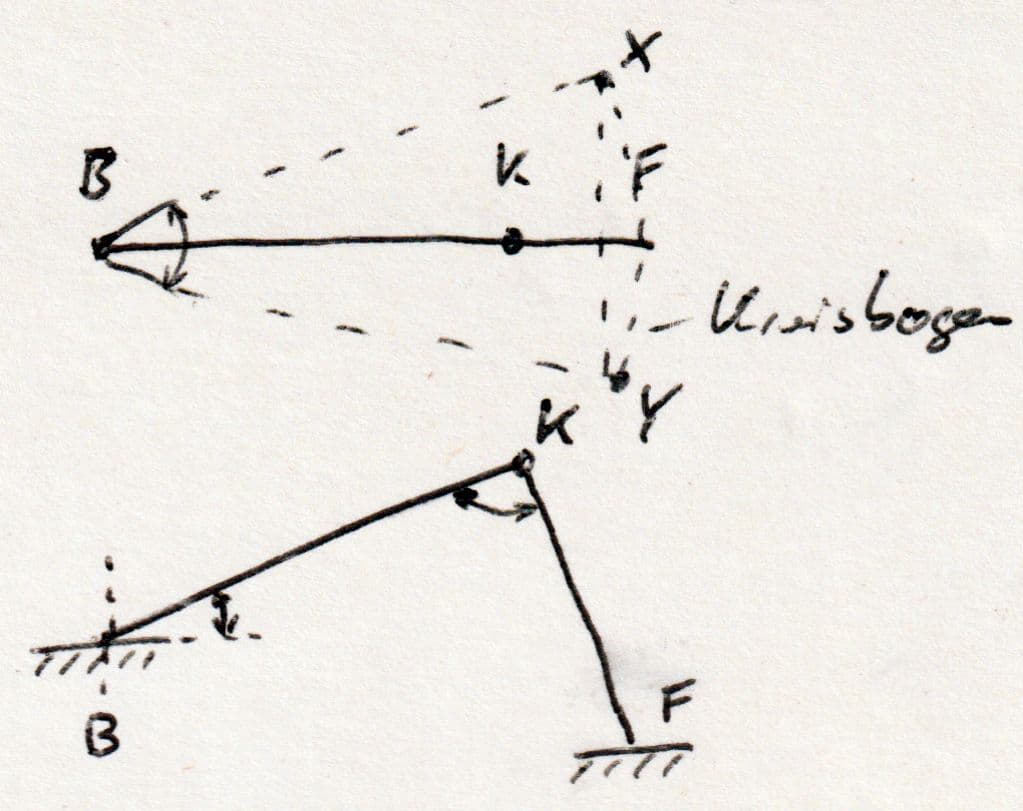 X
B
K
F
Kreisbogen
Y
K
F
B